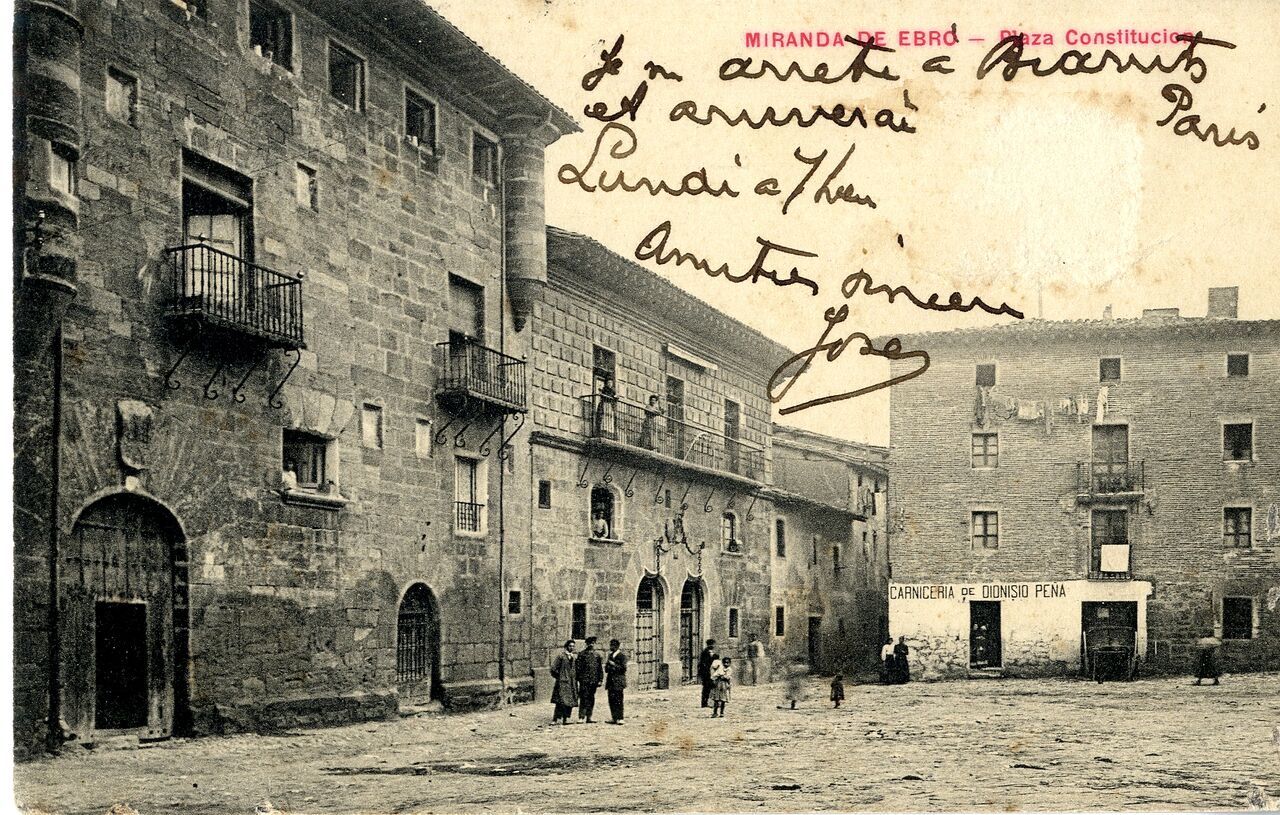 MIRANDA DE EBRO — Plaza Constitucion
Je m arrete à Biarrits
et arriverai Paris
Lundi a 7 h
Amities sincer
Jose
CARNICERIA DE DIONISIO PEÑA